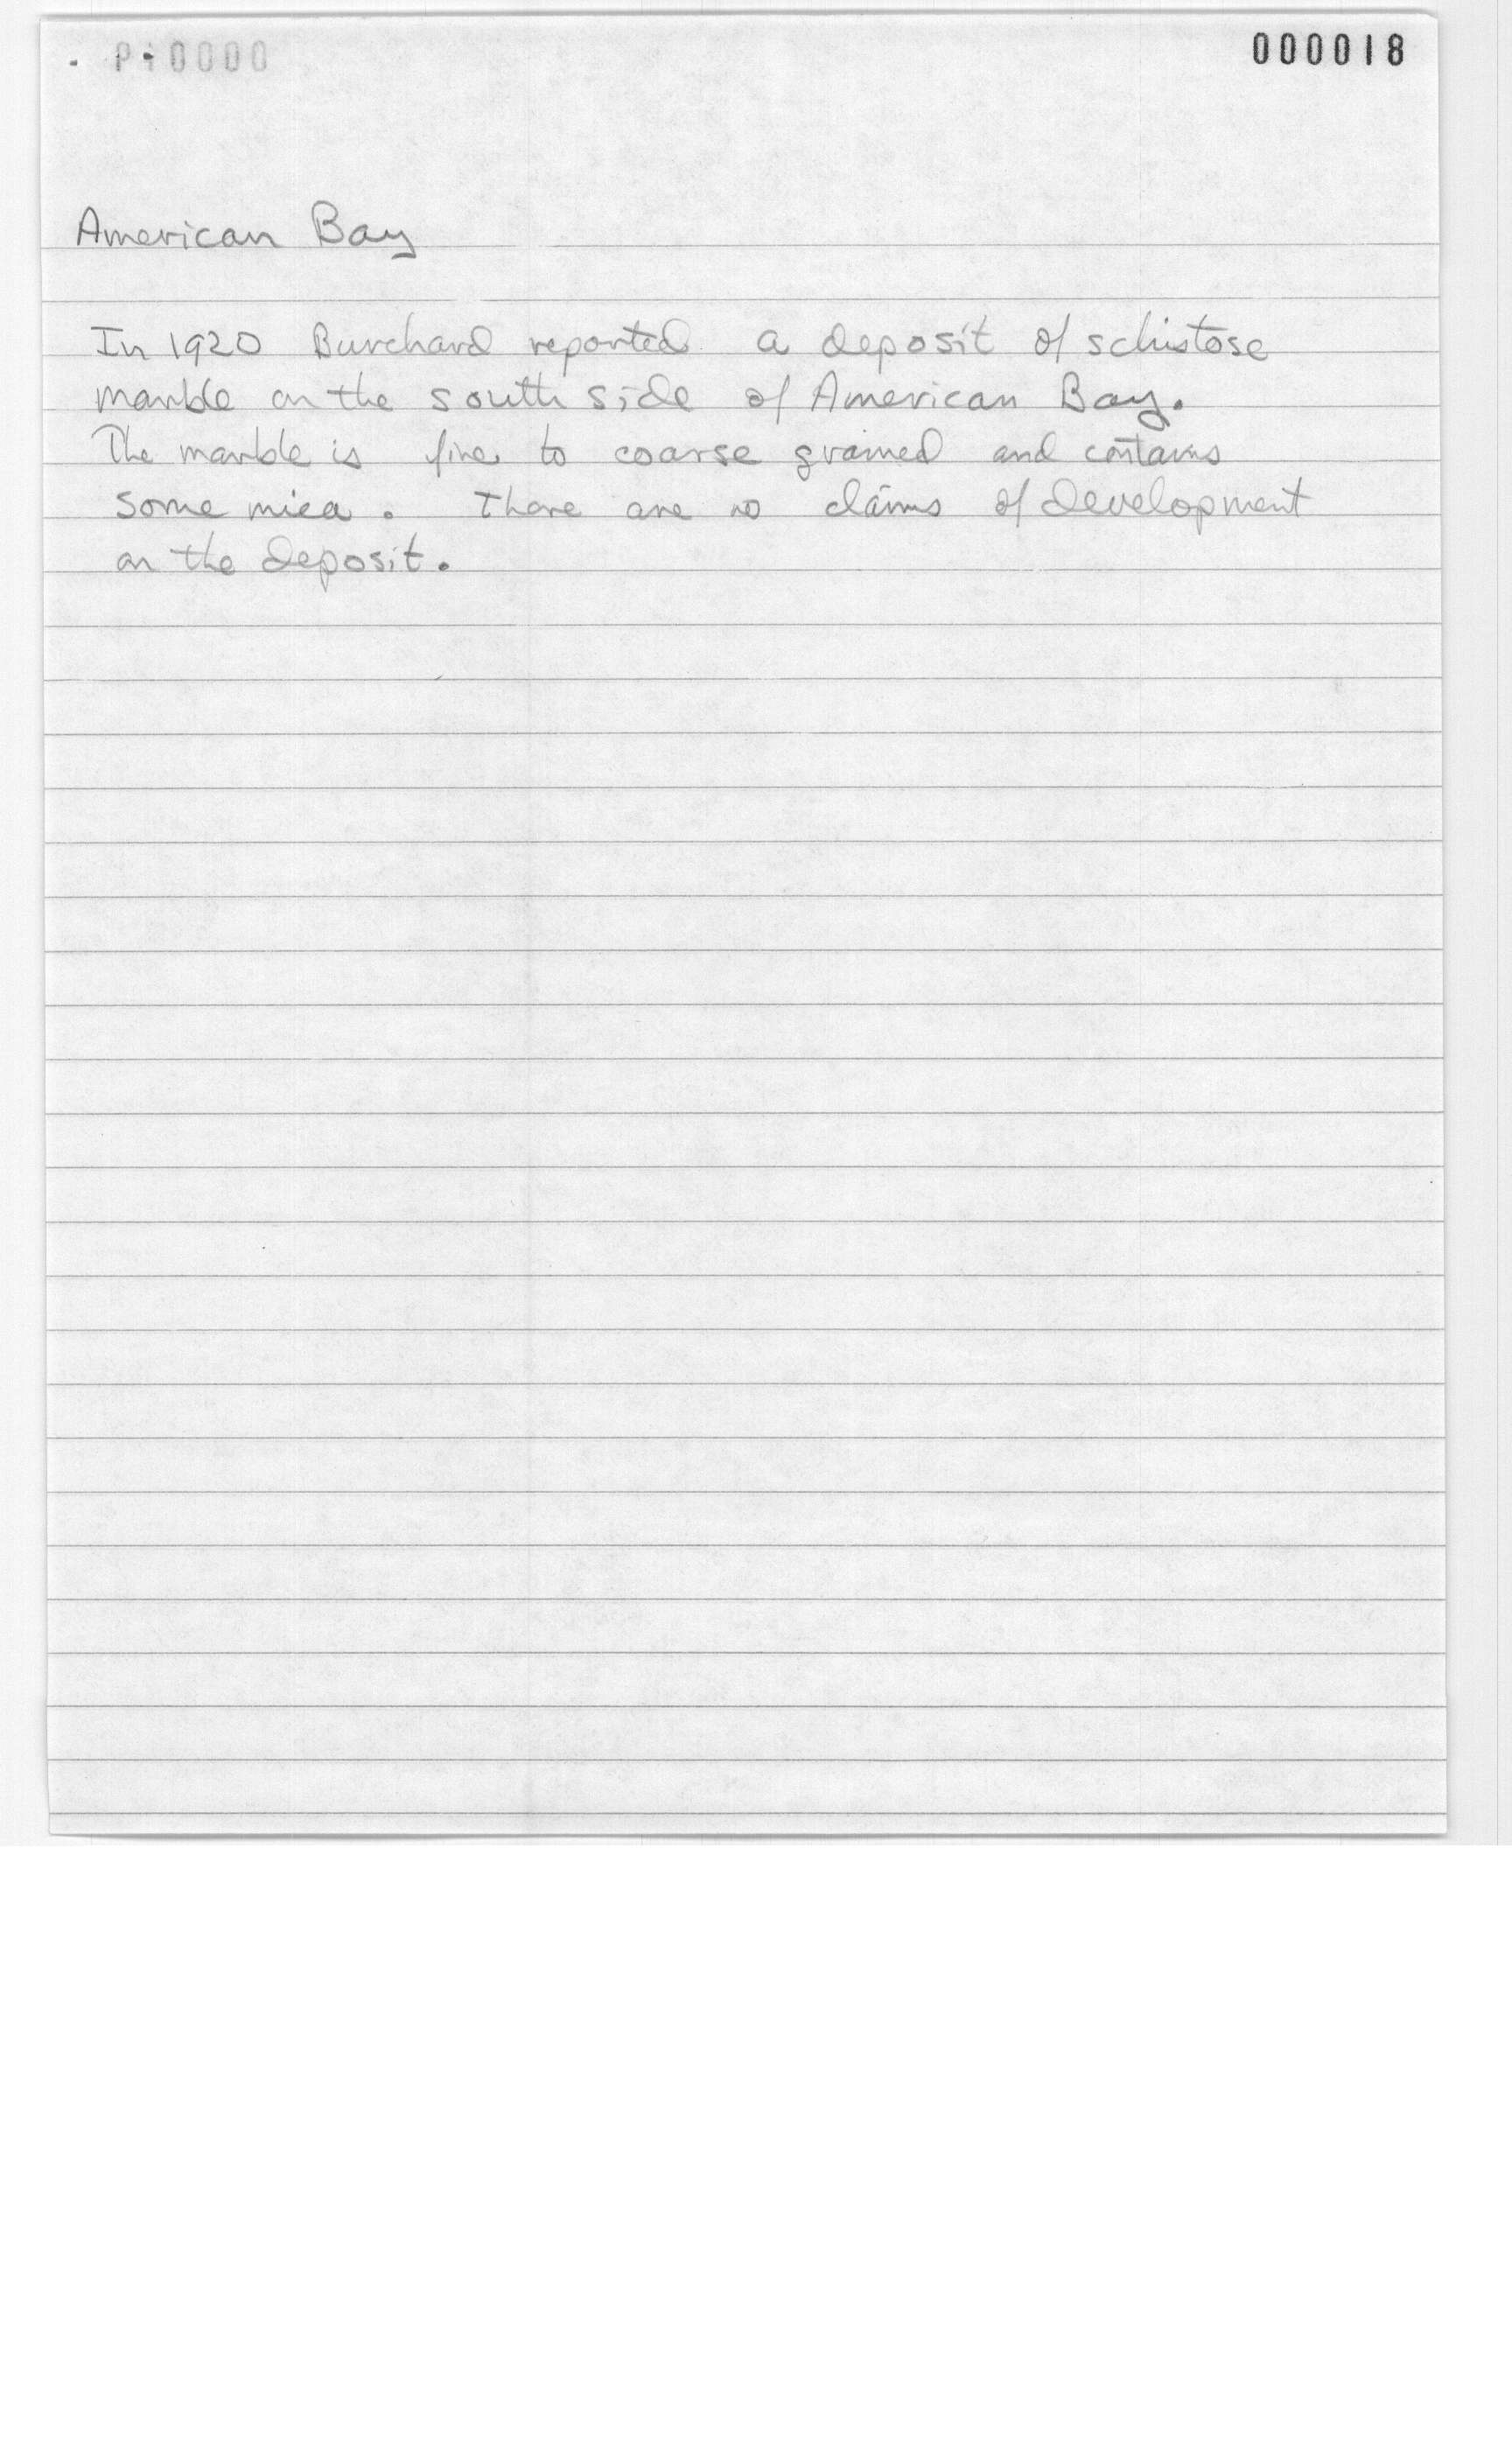 000018
American Bay
In 1920 Burchard reported a deposit of schistose
marble on the south side of American Bay.
The marble is fine to coarse grained and contains
some mica. There are no claims of development
on the deposit.